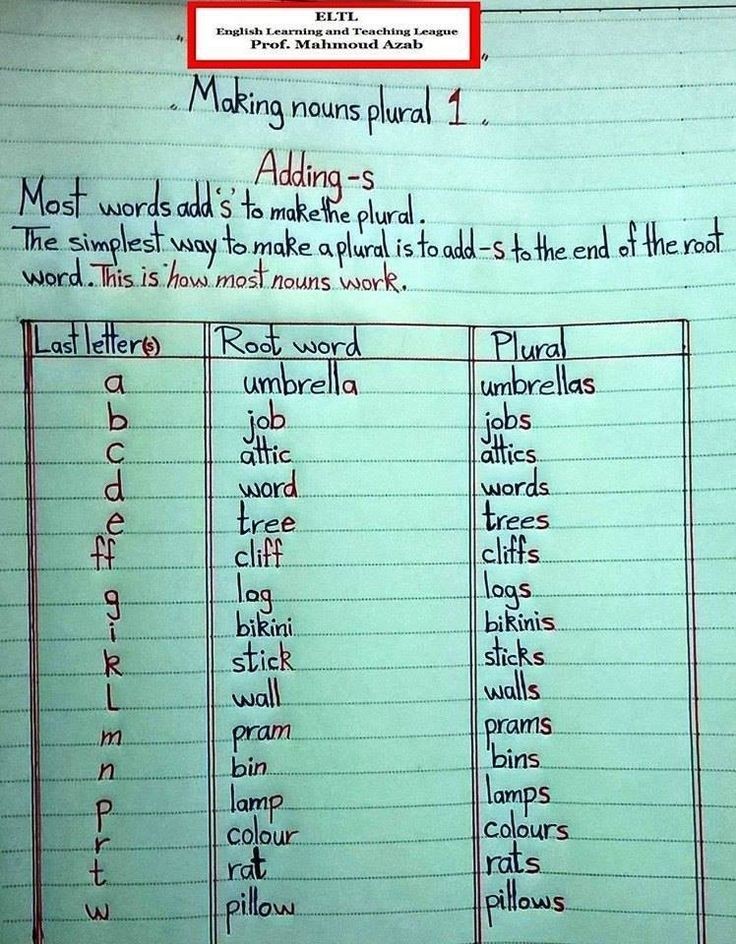 ELTL
English Learning and Teaching League
Prof. Mahmoud Azab
Making nouns plural 1.
Adding -s
Most words add 's' to make the plural.
The simplest way to make a plural is to add -s to the end of the root
word. This is how most nouns work.
Last letter(s) Root word Plural
a umbrella umbrellas
b job jobs
c attic attics
d word words
e tree trees
ff cliff cliffs
g log logs
i bikini bikinis
k stick sticks
L wall walls
m pram prams
n bin bins
p lamp lamps
r colour colours
t rat rats
w pillow pillows